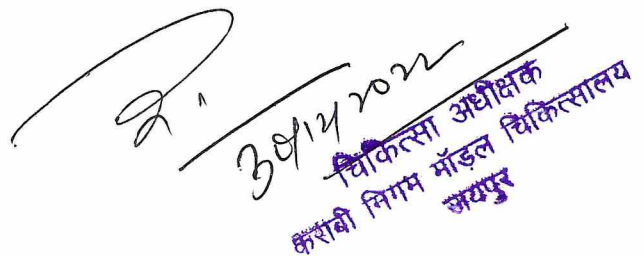 चिकित्सा अधीक्षक
कराबी निगम मॉडल चिकित्सालय
जयपुर